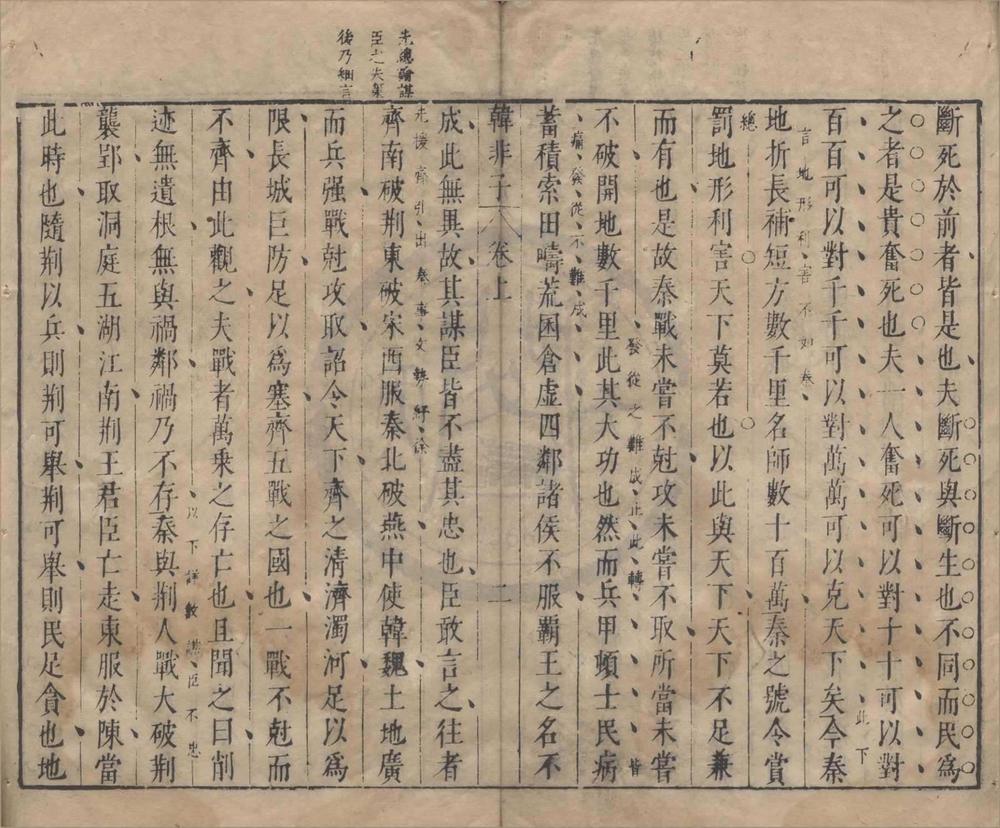 斷死於前者皆是也夫斷死與斷生也不同而民爲
之者是貴奮死也夫一人奮死可以對十十可以對
百百可以對千千可以對萬萬可以克天下矣今秦
此下
言地形利害不如秦
地折長補短方數千里名師數十百萬秦之號令賞
總
罰地形利害天下莫若也以此與天下天下不足兼
而有也是故秦戰未嘗不尅攻未嘗不取所當未嘗
皆
發從之難成止此轉
不破開地數千里此其大功也然而兵甲頓士民病
痛發從不難成
蓄積索田疇荒囷倉虛四鄰諸侯不服覇王之名不
韓非子 卷上 二
先總論謀
臣之失策
後乃細言
成此無異故其謀臣皆不盡其忠也臣敢言之往者
先援齊引出秦事文勢紆徐
齊南破荆東破宋西服秦北破燕中使韓魏土地廣
而兵强戰尅攻取詔令天下齊之清濟濁河足以爲
限長城巨防足以爲塞齊五戰之國也一戰不尅而
不齊由此觀之夫戰者萬乗之存亡也且聞之曰削
以下詳數謀臣不忠
迹無遺根無與禍鄰禍乃不存秦與荆人戰大破荆
襲郢取洞庭五湖江南荆王君臣亡走東服於陳當
此時也隨荆以兵則荆可舉荆可舉則民足貪也地